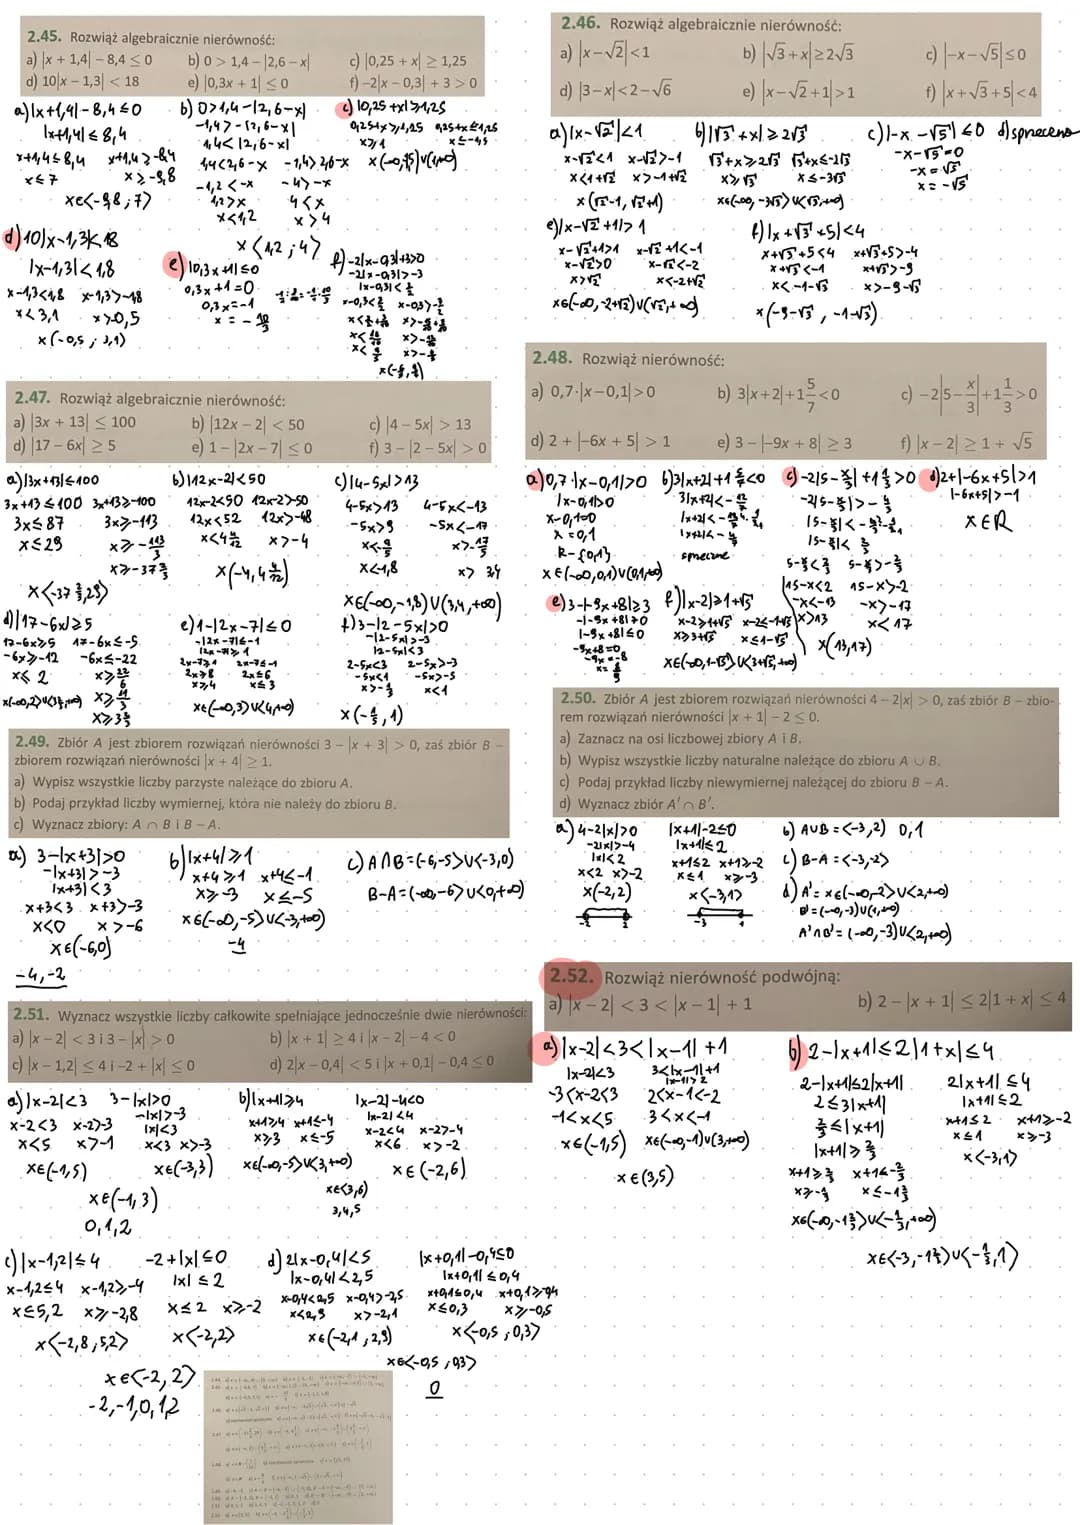 2.45. Rozwiąż algebraicznie nierówność:
a) |x + 1,4| – 8,4 ≤ 0 b) 0 > 1,4 – |2,6 – x| c) |0,25 + x| ≥ 1,25
d) 10|x – 1,3| < 18 e) |0,3x + 1| ≤ 0 f) –2|x – 0,3| + 3 > 0
a) |x+1,4| - 8,4 ≤ 0
|x+1,4| ≤ 8,4
x+1,4 ≤ 8,4 x+1,4 ≥ -8,4
x ≤ 7 x ≥ -9,8
x∈<-9,8 ; 7>
b) 0 > 1,4 - |2,6-x|
-1,4 > -|2,6-x|
1,4 < |2,6-x|
1,4 < 2,6-x -1,4 > 2,6-x
-1,2 < -x -4 > -x
1,2 > x 4 < x
x < 1,2 x > 4
x (1,2 ; 4)
c) |0,25+x| ≥ 1,25
0,25+x ≥ 1,25 0,25+x ≤ -1,25
x ≥ 1 x ≤ -1,5
d) 10|x-1,3| < 18
|x-1,3| < 1,8
x-1,3 < 1,8 x-1,3 > -1,8
x < 3,1 x > -0,5
x (-0,5 ; 3,1)
e) |0,3x+1| ≤ 0
0,3x+1 = 0
0,3x = -1
x = -10/3
f) -2|x-0,3|+3>0
-2|x-0,3| > -3
|x-0,3| < 3/2
2.46. Rozwiąż algebraicznie nierówność:
a) |x – √2| < 1 b) |√3 + x| ≥ 2√3 c) |–x – √5| ≤ 0
d) |3 – x| < 2 – √6 e) |x – √2 + 1| > 1 f) |x + √3 + 5| < 4
a) |x-√2| < 1
x-√2 < 1 x-√2 > -1
x < 1+√2 x > -1+√2
x (√2-1, √2+1)
b) |√3+x| ≥ 2√3
√3+x ≥ 2√3 √3+x ≤ -2√3
x ≥ √3 x ≤ -3√3
x∈(-∞, -3√3> ∪ <√3, +∞)
c) |-x-√5| ≤ 0
-x-√5 = 0
-x = √5
x = -√5
d) sprzeczna
e) |x-√2+1| > 1
x-√2+1 > 1 x-√2+1 < -1
x-√2 > 0 x-√2 < -2
x > √2 x < -2+√2
x∈(-∞, -2+√2) ∪ (√2, +∞)
f) |x+√3+5| < 4
x+√3+5 < 4 x+√3+5 > -4
x+√3 < -1 x+√3 > -9
x < -1-√3 x > -9-√3
x (-9-√3, -1-√3)
2.47. Rozwiąż algebraicznie nierówność:
a) |3x + 13| ≤ 100 b) |12x – 2| < 50 c) |4 – 5x| > 13
d) |17 – 6x| ≥ 5 e) 1 – |2x – 7| ≤ 0 f) 3 – |2 – 5x| > 0
a) |3x+13| ≤ 100
3x+13 ≤ 100 3x+13 ≥ -100
3x ≤ 87 3x ≥ -113
x ≤ 29 x ≥ -113/3
x ≥ -37 2/3
x <-37 2/3, 29>
b) |12x-2| < 50
12x-2 < 50 12x-2 > -50
12x < 52 12x > -48
x < 4 4/12 x > -4
x (-4, 4 4/12)
c) |4-5x| > 13
4-5x > 13 4-5x < -13
-5x > 9 -5x < -17
x < -9/5 x > 17/5
x < -1,8 x > 3,4
x∈(-∞, -1,8) ∪ (3,4, +∞)
d) |17-6x| ≥ 5
17-6x ≥ 5 17-6x ≤ -5
-6x ≥ -12 -6x ≤ -22
x ≤ 2 x ≥ 22/6
x ≥ 11/3
x ≥ 3 2/3
e) 1-|2x-7| ≤ 0
-|2x-7| ≤ -1
|2x-7| ≥ 1
2x-7 ≥ 1 2x-7 ≤ -1
2x ≥ 8 2x ≤ 6
x ≥ 4 x ≤ 3
x∈(-∞, 3> ∪ <4, +∞)
f) 3-|2-5x| > 0
-|2-5x| > -3
|2-5x| < 3
2-5x < 3 2-5x > -3
-5x < 1 -5x > -5
x > -1/5 x < 1
x (-1/5, 1)
2.48. Rozwiąż nierówność:
a) 0,7·|x – 0,1| > 0 b) 3|x + 2| + 1 5/7 < 0 c) –2|5 – x/3| + 1 1/3 > 0
d) 2 + |–6x + 5| > 1 e) 3 – |–9x + 8| ≥ 3 f) |x – 2| ≥ 1 + √5
a) 0,7·|x-0,1| > 0
|x-0,1| > 0
x-0,1 = 0
x = 0,1
R-{0,1}
x∈(-∞, 0,1) ∪ (0,1, +∞)
b) 3|x+2| + 1 5/7 < 0
3|x+2| < -12/7
sprzeczne
c) -2|5-x/3| + 1 1/3 > 0
-2|5-x/3| > -4/3
|5-x/3| < 2/3
5-x/3 < 2/3 5-x/3 > -2/3
15-x < 2 15-x > -2
-x < -13 -x > -17
x > 13 x < 17
x (13, 17)
d) 2+|-6x+5| > 1
|-6x+5| > -1
x∈R
e) 3-|-9x+8| ≥ 3
-|-9x+8| ≥ 0
|-9x+8| ≤ 0
-9x+8 = 0
-9x = -8
x = 8/9
f) |x-2| ≥ 1+√5
x-2 ≥ 1+√5 x-2 ≤ -1-√5
x ≥ 3+√5 x ≤ 1-√5
x∈(-∞, 1-√5> ∪ <3+√5, +∞)
2.49. Zbiór A jest zbiorem rozwiązań nierówności 3 – |x + 3| > 0, zaś zbiór B –
zbiorem rozwiązań nierówności |x + 4| ≥ 1.
a) Wypisz wszystkie liczby parzyste należące do zbioru A.
b) Podaj przykład liczby wymiernej, która nie należy do zbioru B.
c) Wyznacz zbiory: A ∩ B i B – A.
a) 3-|x+3| > 0
-|x+3| > -3
|x+3| < 3
x+3 < 3 x+3 > -3
x < 0 x > -6
x∈(-6,0)
-4, -2
b) |x+4| ≥ 1
x+4 ≥ 1 x+4 ≤ -1
x ≥ -3 x ≤ -5
x∈(-∞, -5> ∪ <-3, +∞)
-4
c) A∩B = (-6, -5> ∪ <-3, 0)
B-A = (-∞, -6> ∪ <0, +∞)
2.50. Zbiór A jest zbiorem rozwiązań nierówności 4 – 2|x| > 0, zaś zbiór B – zbio-
rem rozwiązań nierówności |x + 1| – 2 ≤ 0.
a) Zaznacz na osi liczbowej zbiory A i B.
b) Wypisz wszystkie liczby naturalne należące do zbioru A ∪ B.
c) Podaj przykład liczby niewymiernej należącej do zbioru B – A.
d) Wyznacz zbiór A' ∩ B'.
a) 4-2|x| > 0 |x+1|-2 ≤ 0
-2|x| > -4 |x+1| ≤ 2
|x| < 2 x+1 ≤ 2 x+1 ≥ -2
x < 2 x > -2 x ≤ 1 x ≥ -3
x (-2, 2) x <-3, 1>
-2 2 -3 1
b) A∪B = <-3, 2) 0, 1
c) B-A = <-3, -2>
d) A' = x∈(-∞, -2> ∪ <2, +∞)
B' = (-∞, -3) ∪ (1, +∞)
A'∩B' = (-∞, -3) ∪ <2, +∞)
2.51. Wyznacz wszystkie liczby całkowite spełniające jednocześnie dwie nierówności:
a) |x – 2| < 3 i 3 – |x| > 0 b) |x + 1| ≥ 4 i |x – 2| – 4 < 0
c) |x – 1,2| ≤ 4 i –2 + |x| ≤ 0 d) 2|x – 0,4| < 5 i |x + 0,1| – 0,4 ≤ 0
a) |x-2| < 3 3-|x| > 0
x-2 < 3 x-2 > -3 -|x| > -3
x < 5 x > -1 |x| < 3
x < 3 x > -3
x∈(-1, 5) x∈(-3, 3)
x∈(-1, 3)
0, 1, 2
b) |x+1| ≥ 4 |x-2|-4 < 0
x+1 ≥ 4 x+1 ≤ -4 |x-2| < 4
x ≥ 3 x ≤ -5 x-2 < 4 x-2 > -4
x < 6 x > -2
x∈(-∞, -5> ∪ <3, +∞) x∈(-2, 6)
x∈<3, 6)
3, 4, 5
c) |x-1,2| ≤ 4 -2+|x| ≤ 0
x-1,2 ≤ 4 x-1,2 ≥ -4 |x| ≤ 2
x ≤ 5,2 x ≥ -2,8 x ≤ 2 x ≥ -2
x <-2,8 ; 5,2> x <-2, 2>
x∈<-2, 2>
-2, -1, 0, 1, 2
d) 2|x-0,4| < 5 |x+0,1|-0,4 ≤ 0
|x-0,4| < 2,5 |x+0,1| ≤ 0,4
x-0,4 < 2,5 x-0,4 > -2,5 x+0,1 ≤ 0,4 x+0,1 ≥ -0,4
x < 2,9 x > -2,1 x ≤ 0,3 x ≥ -0,5
x∈(-2,1 ; 2,9) x <-0,5 ; 0,3>
x∈<-0,5 ; 0,3>
0
2.52. Rozwiąż nierówność podwójną:
a) |x – 2| < 3 < |x – 1| + 1 b) 2 – |x + 1| ≤ 2|1 + x| ≤ 4
a) |x-2| < 3 < |x-1| + 1
|x-2| < 3 3 < |x-1| + 1
|x-1| > 2
-3 < x-2 < 3 2 < x-1 < -2
-1 < x < 5 3 < x < -1
x∈(-1, 5) x∈(-∞, -1) ∪ (3, +∞)
x∈(3, 5)
b) 2-|x+1| ≤ 2|1+x| ≤ 4
2-|x+1| ≤ 2|x+1| 2|x+1| ≤ 4
2 ≤ 3|x+1| |x+1| ≤ 2
2/3 ≤ |x+1| x+1 ≤ 2 x+1 ≥ -2
|x+1| ≥ 2/3 x ≤ 1 x ≥ -3
x+1 ≥ 2/3 x+1 ≤ -2/3 x <-3, 1>
x ≥ -1/3 x ≤ -1 2/3
x∈(-∞, -1 2/3> ∪ <-1/3, +∞)
x∈<-3, -1 2/3> ∪ <-1/3, 1>